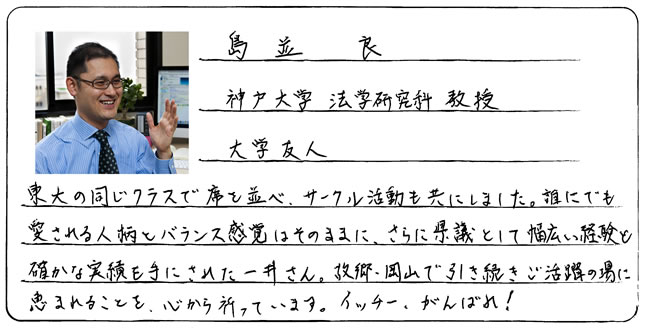 島並 良
神戸大学 法学研究科 教授
大学友人
東大の同じクラスで席を並べ、サークル活動も共にしました。誰にでも
愛される人柄とバランス感覚はそのままに、さらに県議として幅広い経験と
確かな実績を手にされた一井さん。故郷・岡山で引き続きご活躍の場に
恵まれることを、心から祈っています。イッチー、がんばれ!